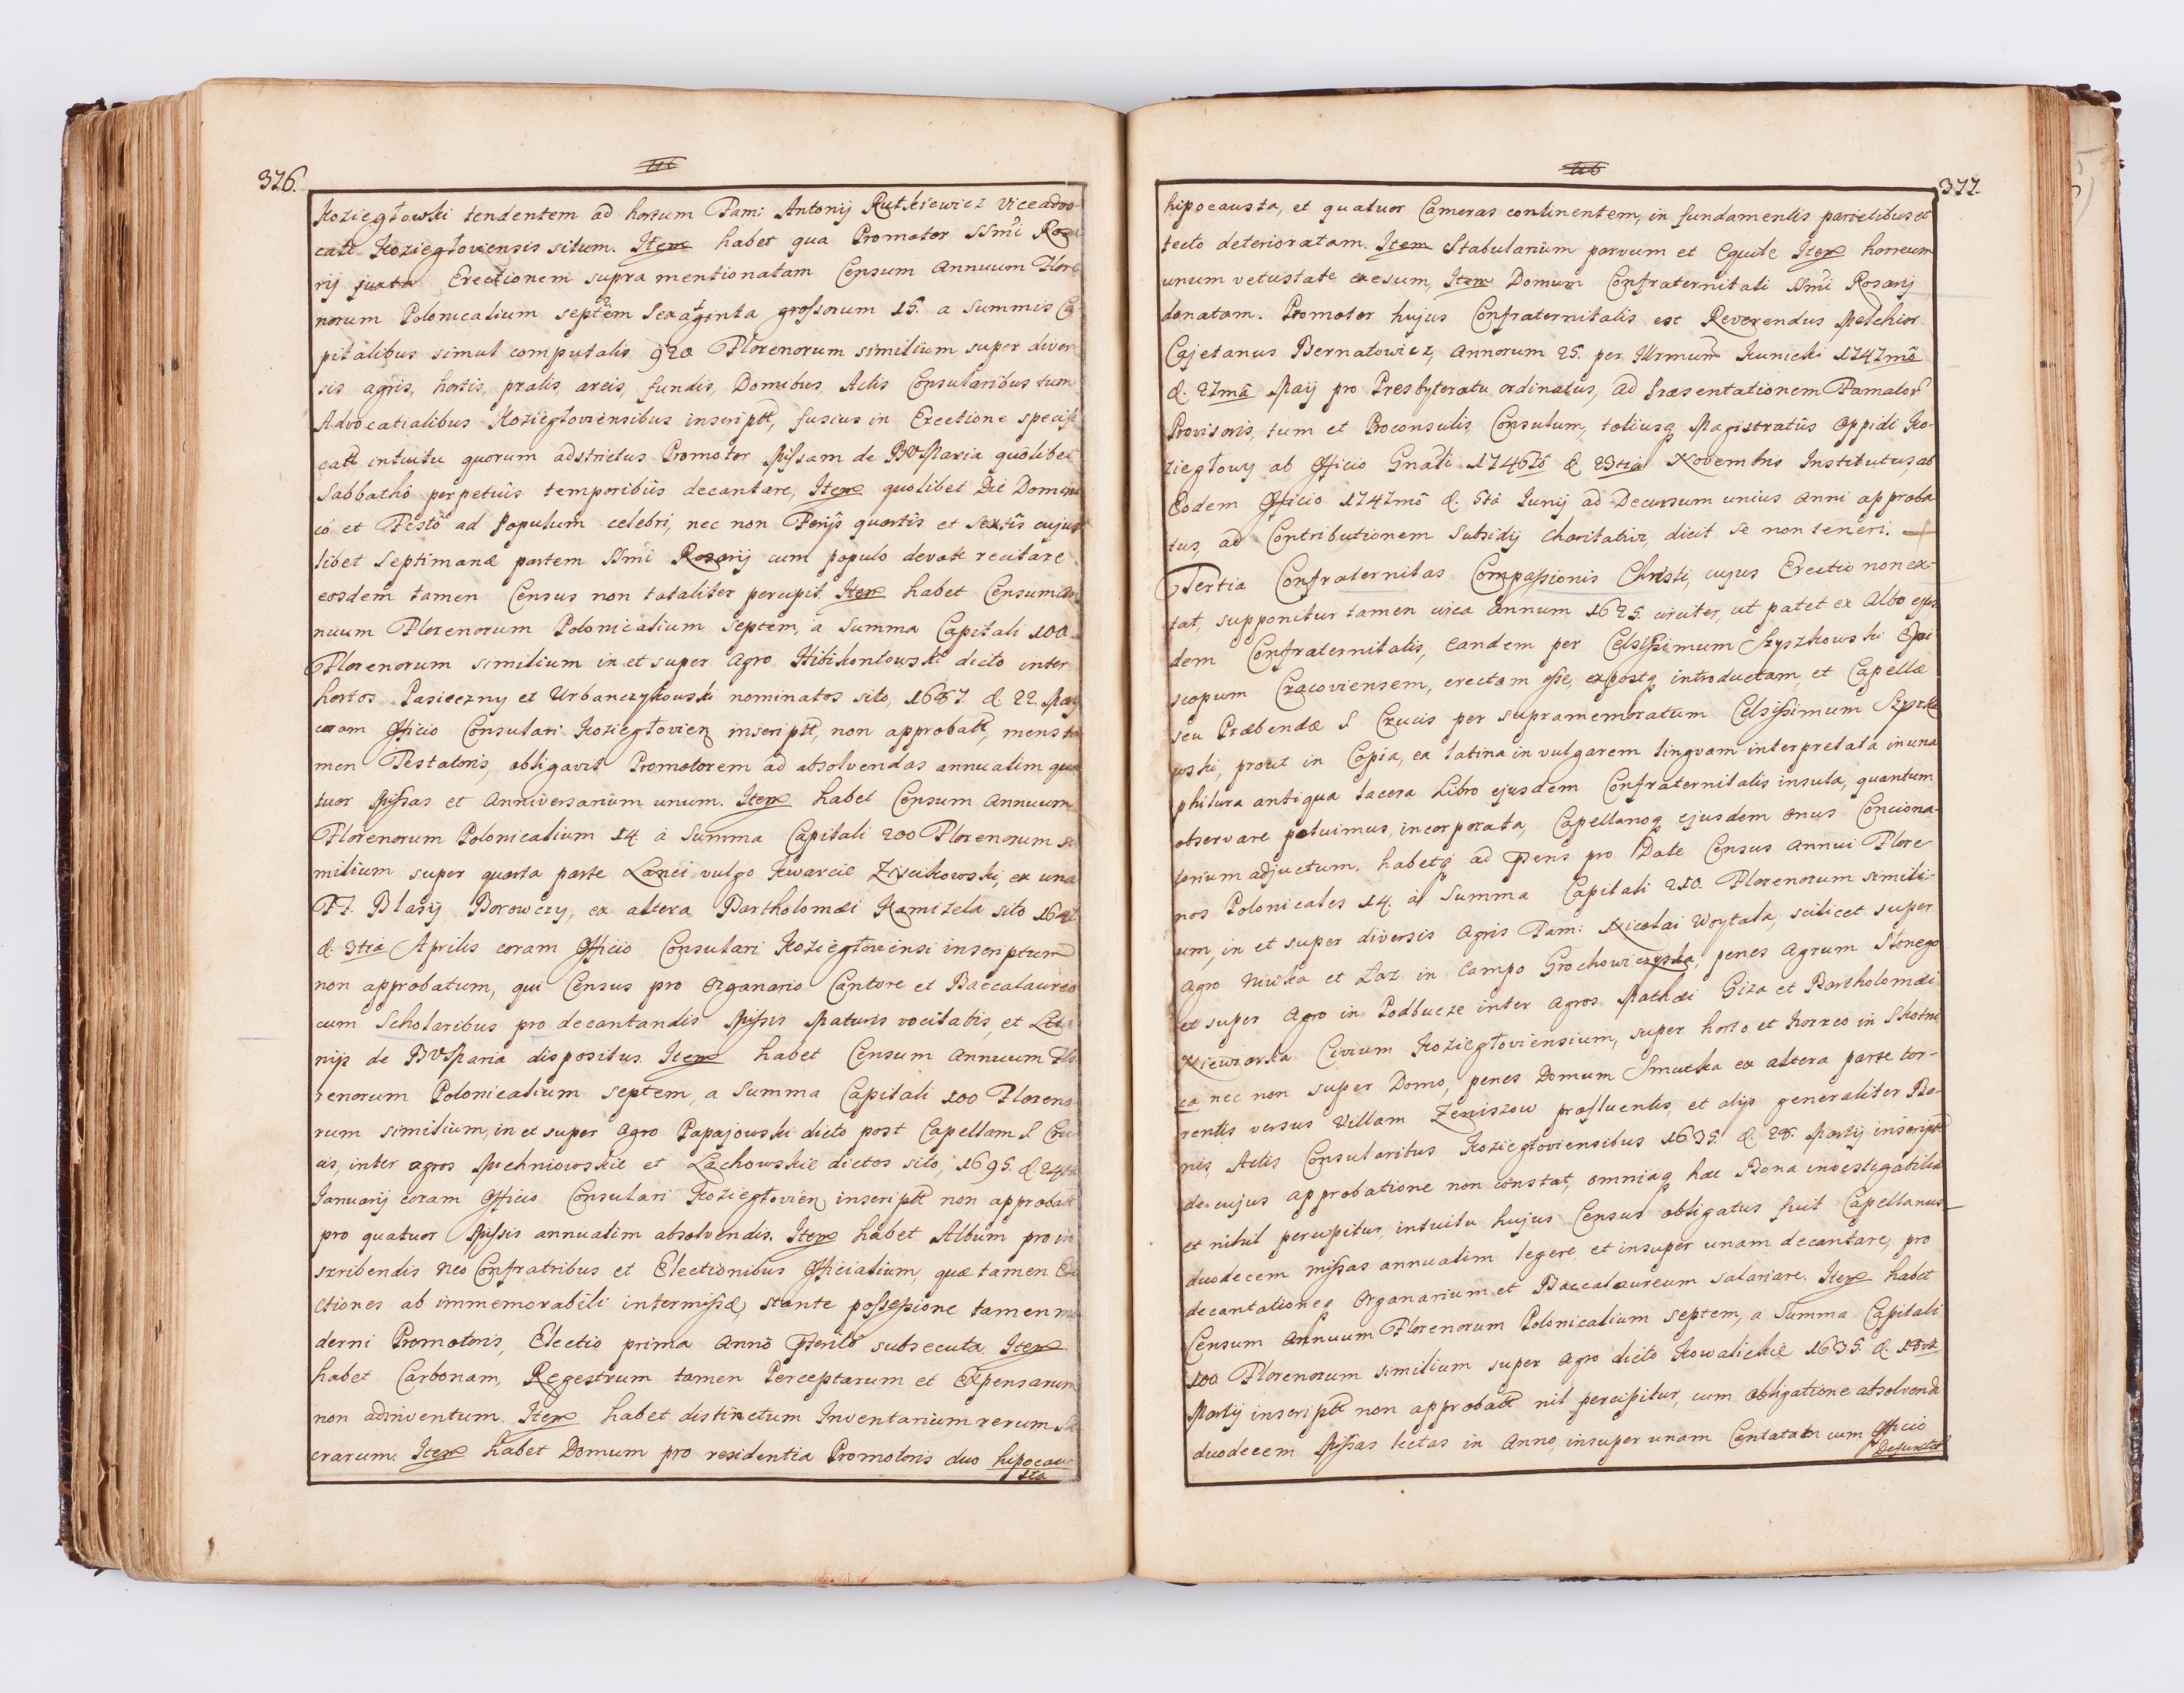 376.
Koziegłowski tendentem ad hortum Fami Antonij Rutkiewicz Viceadvo-
cati Koziegłoviensis situm. Item habet qua Promotor SSmi Rosa
rij juxta Erectionem supra mentionatam Censum Annuum Flore
norum Polonicalium septem Sexaginta grossorum 15. a Summis Ca
pitalibus simul computatis 920 Florenorum similium super diver
sis agris, hortis, pratis, areis, fundis, Domibus, Actis Consularibus tum
Advocatialibus Koziegłoviensibus inscript, fusius in Erectione specifi
catt intuitu quorum adstrictus Promotor Missam de BVMaria quolibet
Sabbatho perpetuis temporibus decantare, Item quolibet Die Domini
co et Festo ad Populum celebri, nec non Ferijs quartis et Sextis cujus
libet Septimanæ partem SSmi Rosarij cum populo devote recitare
eosdem tamen Census non totaliter percipit. Item habet Censum An
nuum Florenorum Polonicalium Septem, a Summa Capitali 100
Florenorum similium in et super Agro Kibikontowski dicto inter
hortos Pasieczny et Urbanczykowski nominatos sito, 1667 d. 22. Maij
coram Officio Consulari Koziegłovien inscript, non approbatt, mens ta
men Testatoris, obligavit Promotorem ad absolvendas annuatim qua
tuor Missas et Anniversarium unum. Item habet Censum Annuum
Florenorum Polonicalium 14 á Summa Capitali 200 Florenorum si
milium super quarta parte Lanei vulgo Kwarcie Zrycikowski, ex una
FF. Blasij Borowczy, ex altera Bartholomæi Kamizela sito 164
d. 3tia Aprilis coram Officio Consulari Koziegłoviensi inscriptum
non approbatum, qui Census pro Organario Cantore et Baccalaureo
cum Scholaribus pro decantandis Missis Maturis vocitatis, et Lita
nijs de BVMaria dispositus. Item habet Censum Annuum Flo
renorum Polonicalium septem, a Summa Capitali 100 Floreno
rum similium, in et super Agro Papajowski dicto post Capellam S. Cru
cis, inter agros Michniowskie et Lachowskie dictos sito, 1695. d. 24ta
Januarij coram Officio Consulari Koziegłovien inscriptt non approbatt
pro quatuor Missis annuatim absolvendis. Item habet Album pro in
scribendis Neo Confratribus et Electionibus Officialium, quæ tamen Ele
ctiones ab immemorabili intermissæ, stante possessione tamen mo
derni Promotoris, Electio prima Anno pterito subsecuta. Item
habet Carbonam, Regestrum tamen Perceptarum et Expensarum
non adinventum. Item habet distinctum Inventarium rerum Sa
crarum. Item habet Domum pro residentia Promotoris duo hipocau
sta
377.
hipocausta, et quatuor Cameras continentem, in fundamentis parietibus et
tecto deterioratam. Item Stabularium parvum et Equile Item horreum
unum vetustate exesum, Item Domum Confraternitati SSmi Rosarij
donatam. Promotor hujus Confraternitatis est Reverendus Melchior
Cajetanus Bernatowicz, Annorum 25. per Illrmum Kunicki 1747mô
d. 27mâ Maij pro Presbyteratu ordinatus, ad Præsentationem Famator
Provisoris, tum et Proconsulis, Consulum, totiusq Magistratûs Oppidi Ko-
ziegłowy ab Officio Gnali 1746tô d 23tia Novembris Institutus, ab
Eodem Officio 1747mô d. 5tâ Junij ad Decursum unius anni approba
tus, ad Contributionem Subsidij Charitativi, dicit se non teneri.
Tertia Confraternitas Compassionis Christi, cujus Erectio non ex-
tat, supponitur tamen circa Annum 1625. circiter, ut patet ex Albo ejus
dem Confraternitatis, eandem per Celsissimum Szyszkowski Epi
scopum Cracoviensem, erectam esse, expostq introductam, et Capellæ
seu Præbendæ S Crucis per supramemoratum Celsissimum Szyszko
wski, prout in Copia, ex latina in vulgarem lingvam interpretata in una
philura antiqua lacera Libro ejusdem Confraternitatis insuta, quantum
observare potuimus, incorporata, Capellanoq ejusdem onus Conciona-
torium adjectum. habetq ad pens pro Date Census Annui Flore
nos Polonicales 14. á Summa Capitali 210. Florenorum simili-
um, in et super diversis Agris Fam: Nicolai Woytala, scilicet super
Agro Niwka et Łaz in Campo Grochowiczyska, penes Agrum Stonego
et super Agro in Podbucze inter Agros Mathæi Giza et Bartholomæi
Niewiorka Civium Koziegłoviensium, super horto et Horreo in Skotni
ca nec non super Domo, penes Domum Smutka ex altera parte tor-
rentis versus Villam Zeniszow profluentis, et alijs generaliter Bo-
nis, Actis Consularibus Koziegłoviensibus 1635. d. 28. Martij inscriptt
de cujus approbatione non constat, omniaq hæc Bona investigabilia
et nihil percipitur, intuitu hujus Census obligatus fuit Capellanus
duodecem missas annuatim legere et insuper unam decantare, pro
decantationeq Organarium et Baccalaureum salariare. Item habet
Censum Annuum Florenorum Polonicalium septem, a Summa Capitali
100 Florenorum similium super Agro dicto Kowalickie 1635. d. 18va
Martij inscriptt non approbatt nil percipitur, cum obligatione absolvend
duodecem Missas lectas in Anno, insuper unam Centatam cum Officio
Defunctor